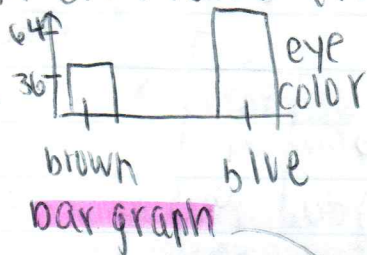 64
eye
36
color
brown
blue
bar graph